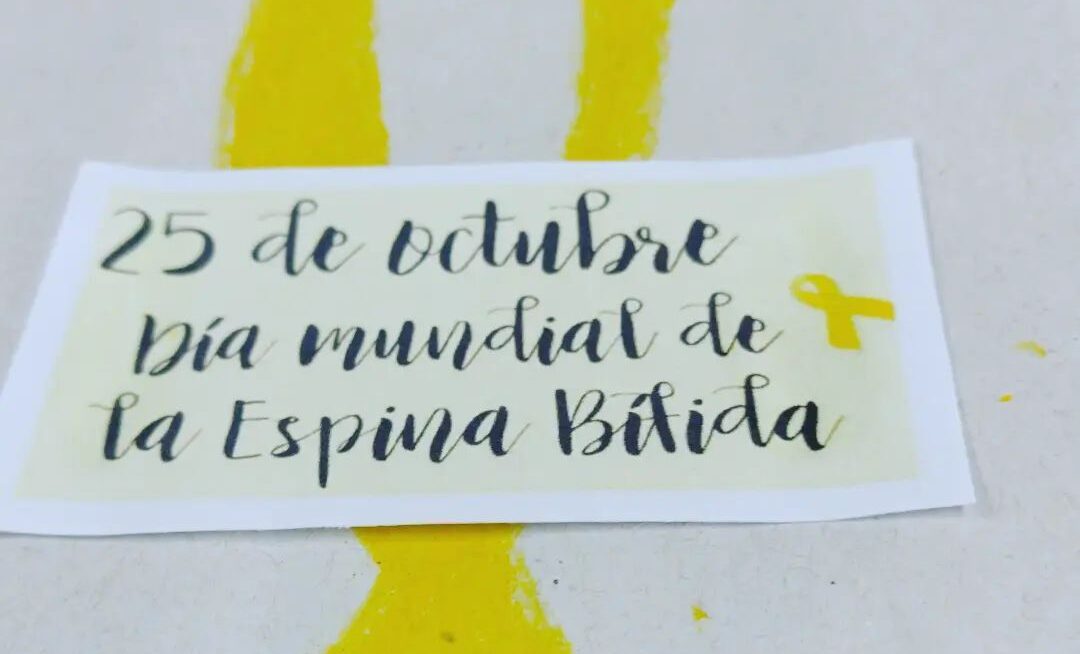 25 de octubre
Día mundial de
la Espina Bífida